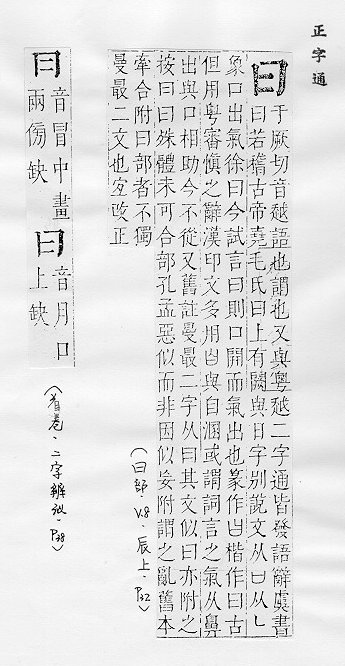 正字通
曰
于厥切音越語也謂也又與粵越二字通皆發語辭虞書
曰若稽古帝堯毛氏曰上有闕與日字別說文从口从乚
象口出氣徐曰今試言曰則口開而氣出也篆作楷作曰古
但用粵審慎之辭漢印文多用與自溷或謂詞言之气从鼻
出與口相助今不從又舊註曼最二字从曰其文似曰亦附之
按曰曰殊體未可合部孔孟惡似而非因似妄附謂之亂舊本
牽合附曰部者不獨
曼最二文也宜改正
(曰部．V.8．辰上．P32)
冃 音冒中畫
兩傍缺
曰 音月口
上缺
(首卷．二字辨似．P38)